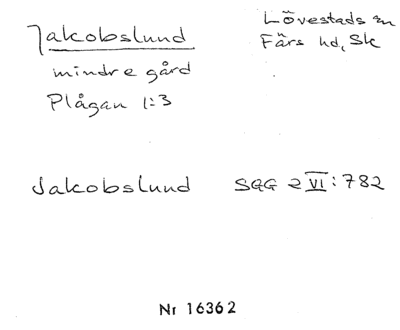 Jakobslund
Lövestads sn
Färs hd, Sk
mindre gård
Plågan 1:3
Jakobslund SGG 2 VI: 782
Nr 16362